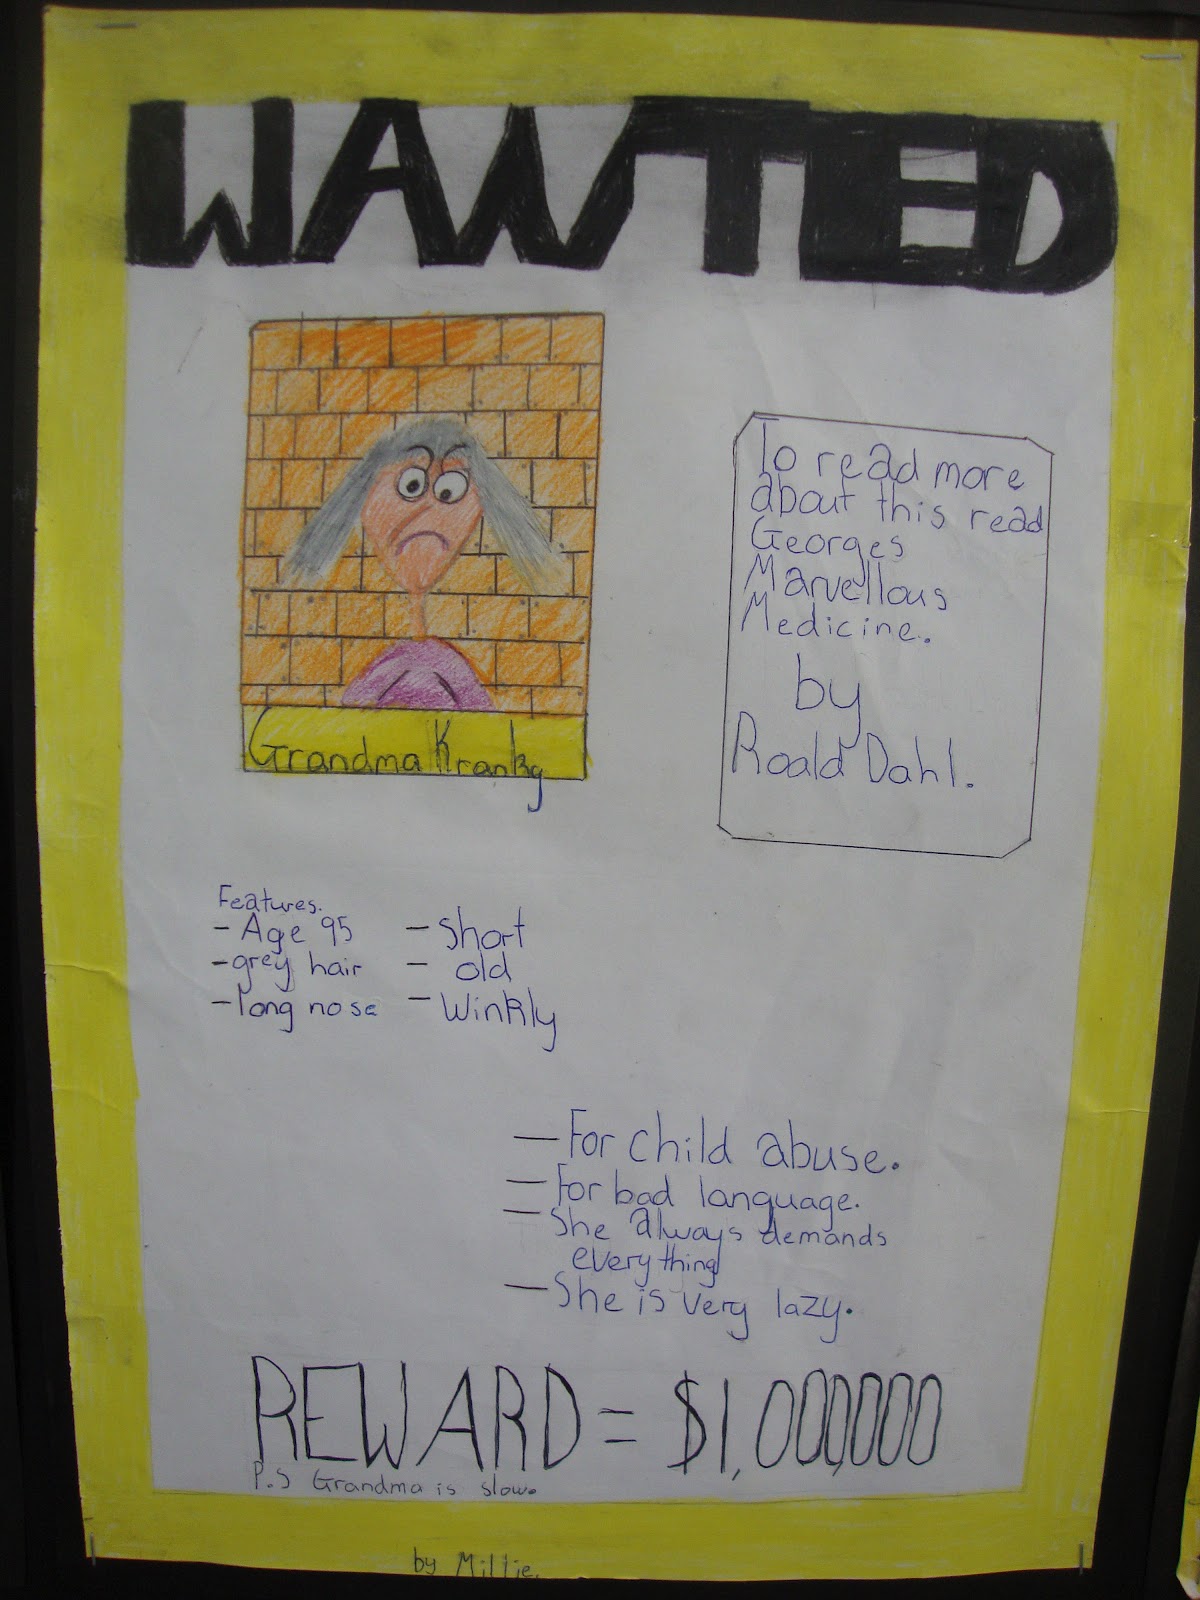 WANTED
Grandma Kranky
To read more
about this read
Georges
Marvellous
Medicine.
by
Roald Dahl.
Features.
- Age 95
- grey hair
- long nose
- Short
- old
- Winkly
- For child abuse.
- For bad language.
- She always demands
everything
- She is very lazy.
REWARD = $1,000,000
P.S Grandma is slow.
by Millie.